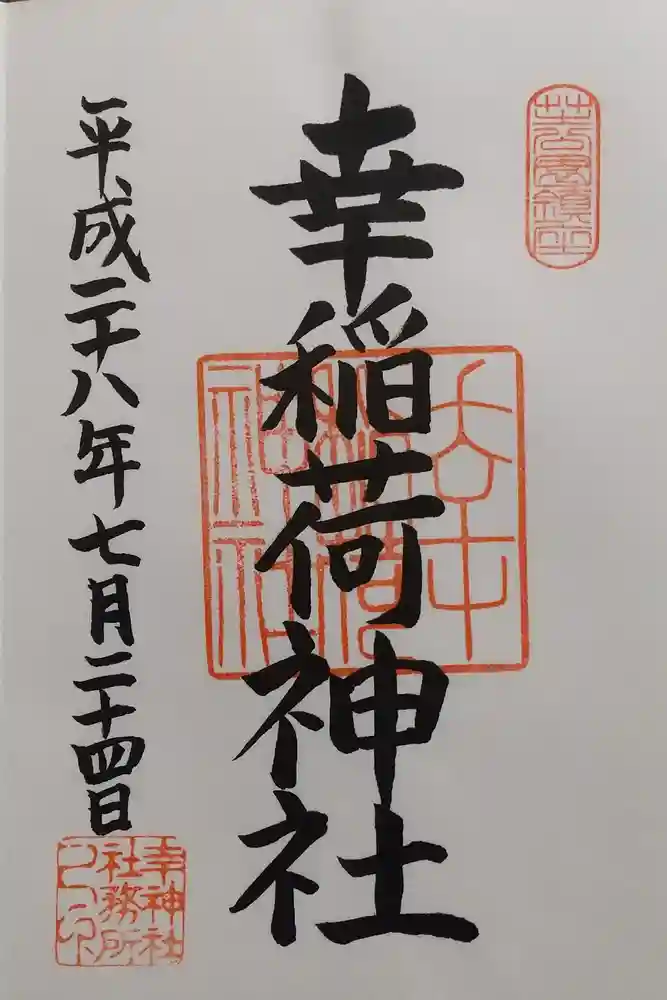 芝公園鎮座
幸稲荷神社
幸
稲荷
神社
平成二十八年七月二十四日
幸神社
社務所
之印